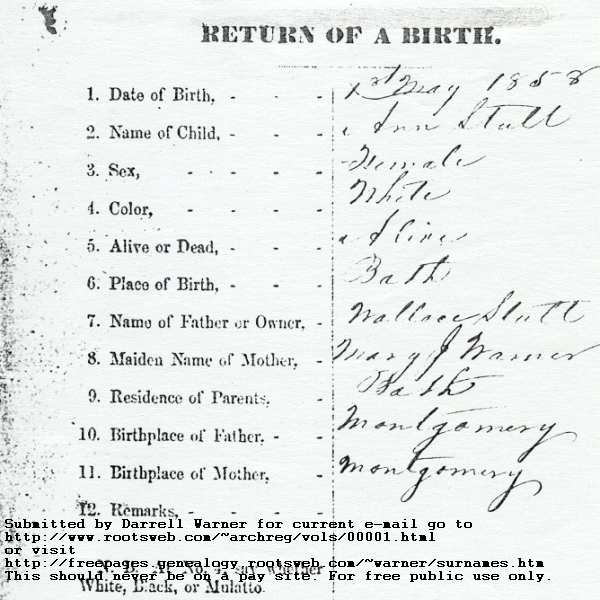 RETURN OF A BIRTH.
1. Date of Birth, - - - 1st May 1858
2. Name of Child, - - - Ann Stull
3. Sex, - - - - Female
4. Color, - - - - White
5. Alive or Dead, - - - Alive
6. Place of Birth, - - - Bath
7. Name of Father or Owner, - Wallace Stull
8. Maiden Name of Mother, - Mary J Warner
9. Residence of Parents, - Bath
10. Birthplace of Father, - - Montgomery
11. Birthplace of Mother, - Montgomery
12. Remarks, - - - -
Submitted by Darrell Warner for current e-mail go to
http://www.rootsweb.com/~archreg/vols/00001.html
or visit
http://freepages.genealogy.rootsweb.com/~warner/surnames.htm
N. B. No. 4, say whether
This should never be on a pay site. For free public use only.
White, Black, or Mulatto.